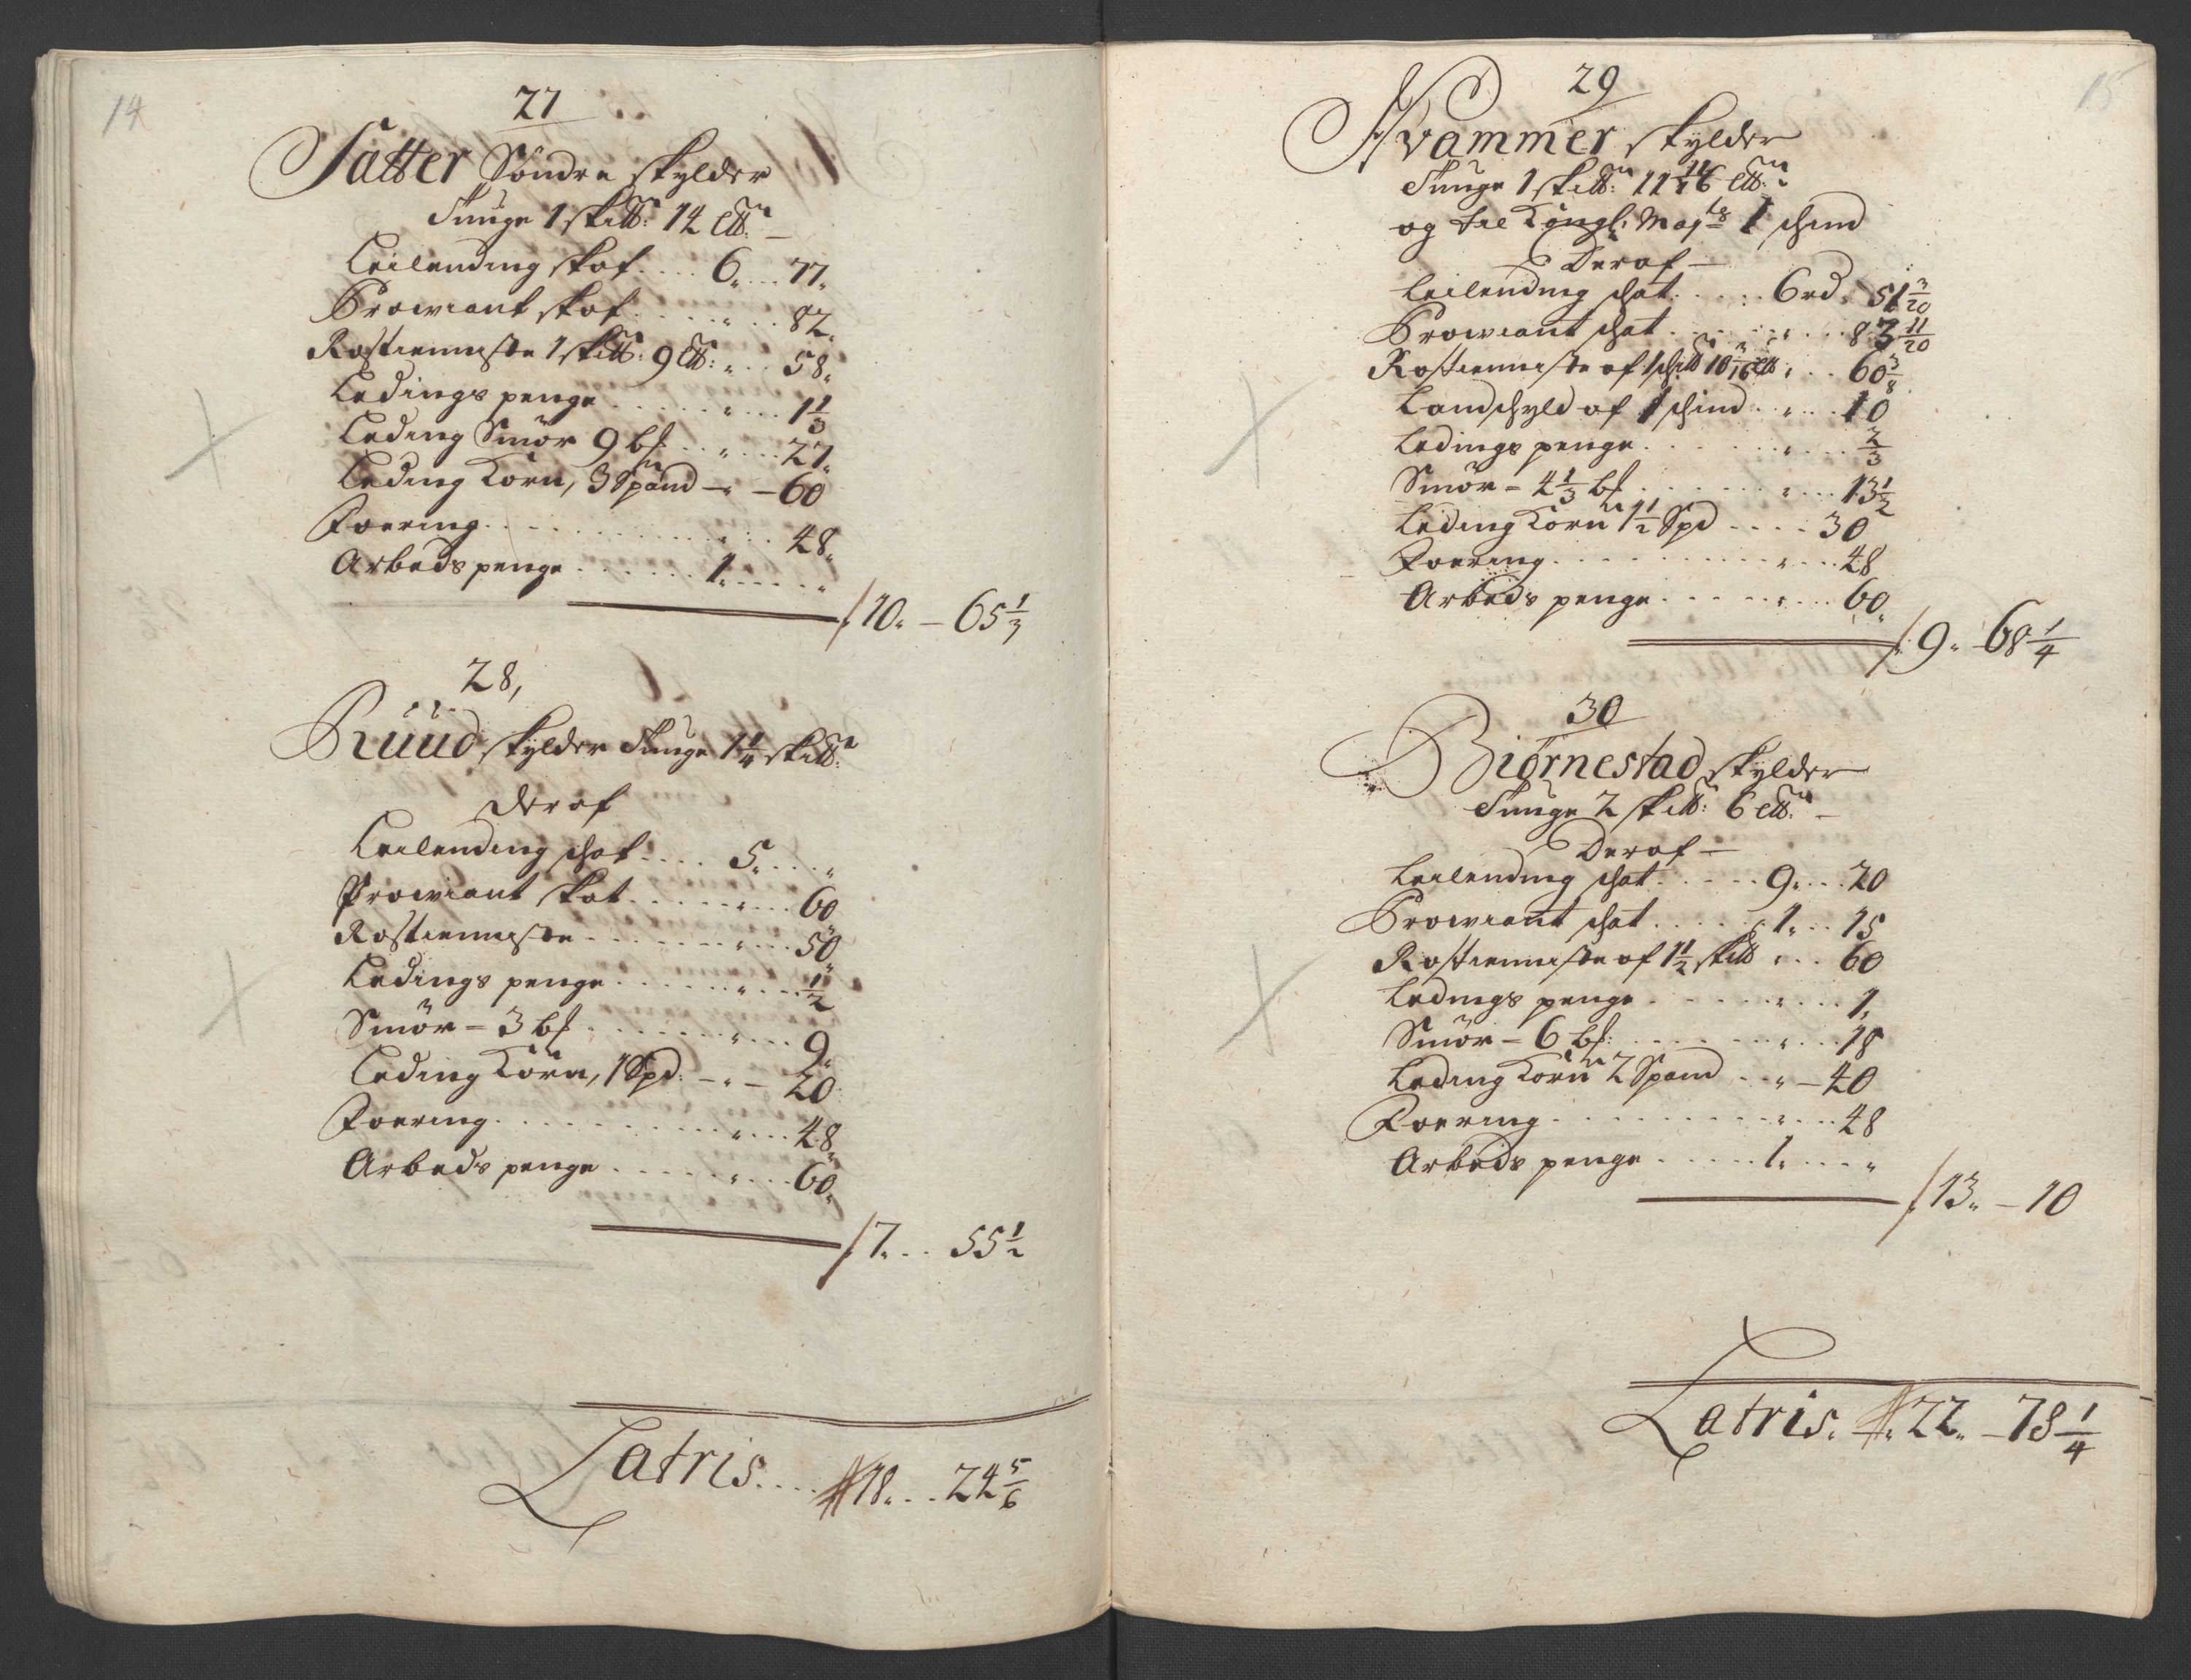 14
27
Satter Söndre skylder
Tunge 1 skill: 14 ltt:
Leilending skat .... 6 .... 77
Prowiant skat .... 82
Rostienniste 1 skill: 9 ltt: .. 58
Ledings penge .... 1 1/3
Leding Smör 9 bl .... 27
Leding Korn, 3 Spand — 60
Foering .... 48
Arbeds penge .... 1 ....
10 — 65 1/3
28,
Rüüd skylder Tunge 1 1/4 skill:
Deraf
Leilending schat .... 5 ....
Prowiant skat .... 60
Rostienniste .... 50
Ledings penge .... 1/2
Smör = 3 bl .... 9
Leding Korn, 1 Spd: — 20
Foering .... 48
Arbeds penge .... 60
7 ... 55 1/2
Latris .... 18 ... 24 5/6
15
29
Kvammer skylder
Tunge 1 skill: 11 11/16 ltt:
og til Kongl: Majts 1 schind
Deraf —
Leilending schat .... 6 rd. 51 3/20
Prowiant schat .... 83 11/20
Rostienniste af 1 schill 10 3/16 ltt .. 60 3/8
Landschyld af 1 schind .... 10
Ledings penge .... 2/3
Smör = 4 1/3 bl .... 13 1/2
Leding Korn 1 1/2 Spd .... 30
Foering .... 48
Arbeds penge .... 60
9 — 68 1/4
30
Biörnestad skylder
Tunge 2 skill: 6 ltt:
Deraf —
Leilending schat .... 9 ... 20
Prowiant schat .... 1 ... 15
Rostienniste af 1 1/2 skill ... 60
Ledings penge .... 1
Smör = 6 bl: .... 18
Leding Korn 2 Spand .. — 40
Foering .... 48
Arbeds penge .... 1 ....
13 — 10
Latris. 22 — 78 1/4